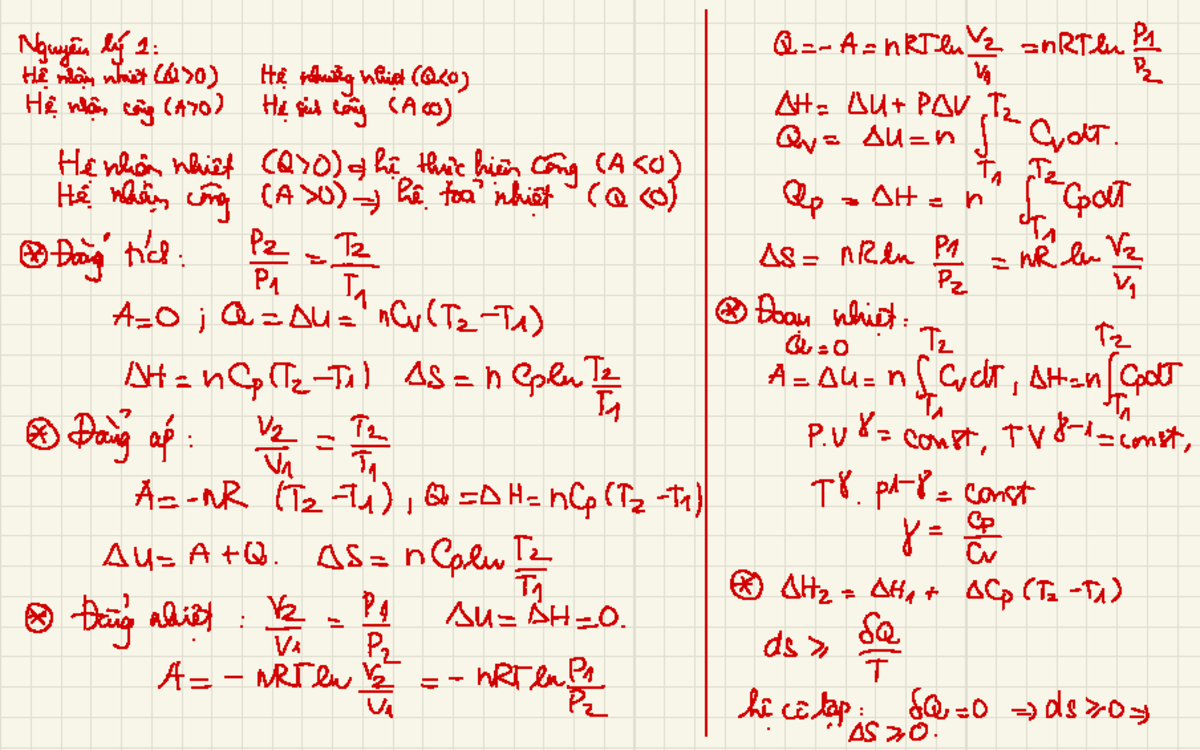 Nguyên lý 1:
Hệ nhận nhiệt (Q>0) Hệ nhường nhiệt (Q<0)
Hệ nhận công (A>0) Hệ sinh công (A<0)
Hệ nhận nhiệt (Q>0) ⇒ hệ thực hiện công (A<0)
Hệ nhận công (A>0) ⇒ hệ toả nhiệt (Q<0)
⊛ Đẳng tích: P2/P1 = T2/T1
A=0 ; Q = ΔU = nCv(T2-T1)
ΔH = nCp(T2-T1) ΔS = n Cp ln T2/T1
⊛ Đẳng áp: V2/V1 = T2/T1
A = -nR (T2-T1), Q = ΔH = nCp(T2-T1)
ΔU = A + Q. ΔS = n Cp ln T2/T1
⊛ Đẳng nhiệt: V2/V1 = P1/P2 ΔU = ΔH = 0.
A = - nRT ln V2/V1 = - nRT ln P1/P2
Q = - A = nRT ln V2/V1 = nRT ln P1/P2
ΔH = ΔU + PΔV
Qv = ΔU = n ∫_T1^T2 CvdT.
Qp = ΔH = n ∫_T1^T2 CpdT
ΔS = nR ln P1/P2 = nR ln V2/V1
⊛ Đoạn nhiệt:
Q=0
A = ΔU = n ∫_T1^T2 CvdT, ΔH = n ∫_T1^T2 CpdT
P.V^γ = const, TV^γ-1 = const,
T^γ. P^1-γ = const
γ = Cp/Cv
⊛ ΔH2 = ΔH1 + ΔCp (T2-T1)
ds ≥ δQ/T
hệ cô lập: δQ=0 ⇒ ds ≥ 0 ⇒
ΔS ≥ 0.